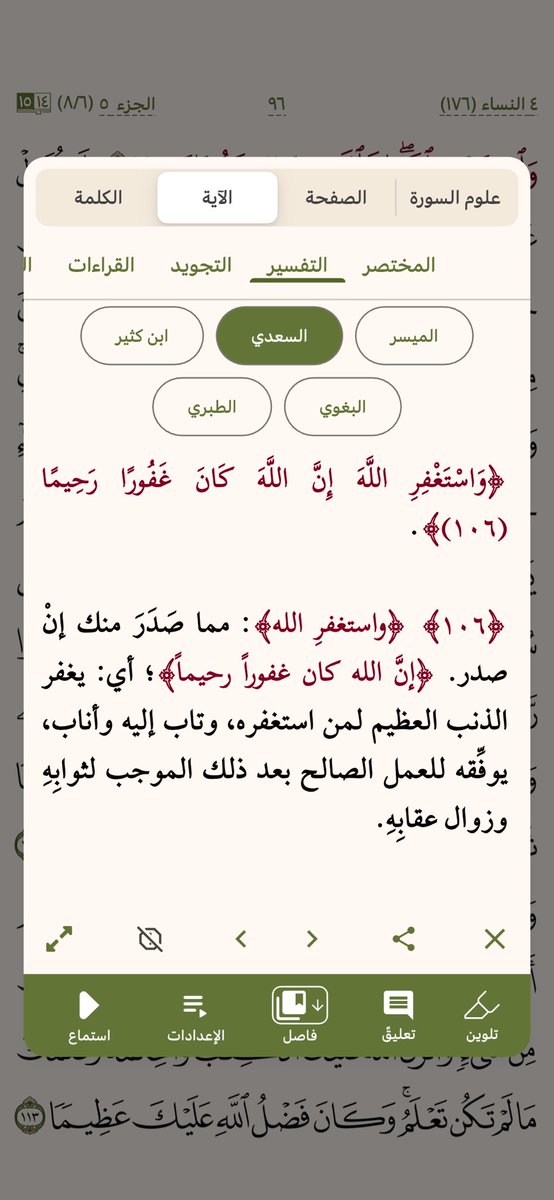 ٤ النساء (١٧٦) ٩٦ الجزء ٥ (٨/٦) ١٤ ١٥
علوم السورة الصفحة الآية الكلمة
المختصر التفسير التجويد القراءات
الميسر السعدي ابن كثير
البغوي الطبري
﴿وَاسْتَغْفِرِ اللَّهَ إِنَّ اللَّهَ كَانَ غَفُورًا رَحِيمًا
(١٠٦)﴾.
﴿١٠٦﴾ ﴿واستغفرِ الله﴾: مما صَدَرَ منك إنْ
صدر. ﴿إنَّ الله كان غفوراً رحيماً﴾؛ أي: يغفر
الذنب العظيم لمن استغفره، وتاب إليه وأناب،
يوفِّقه للعمل الصالح بعد ذلك الموجب لثوابِهِ
وزوال عقابِهِ.
تلوين تعليقً فاصل الإعدادات استماع
مَا لَمْ تَكُن تَعْلَمُ ۚ وَكَانَ فَضْلُ ٱللَّهِ عَلَيْكَ عَظِيمًا ١١٣